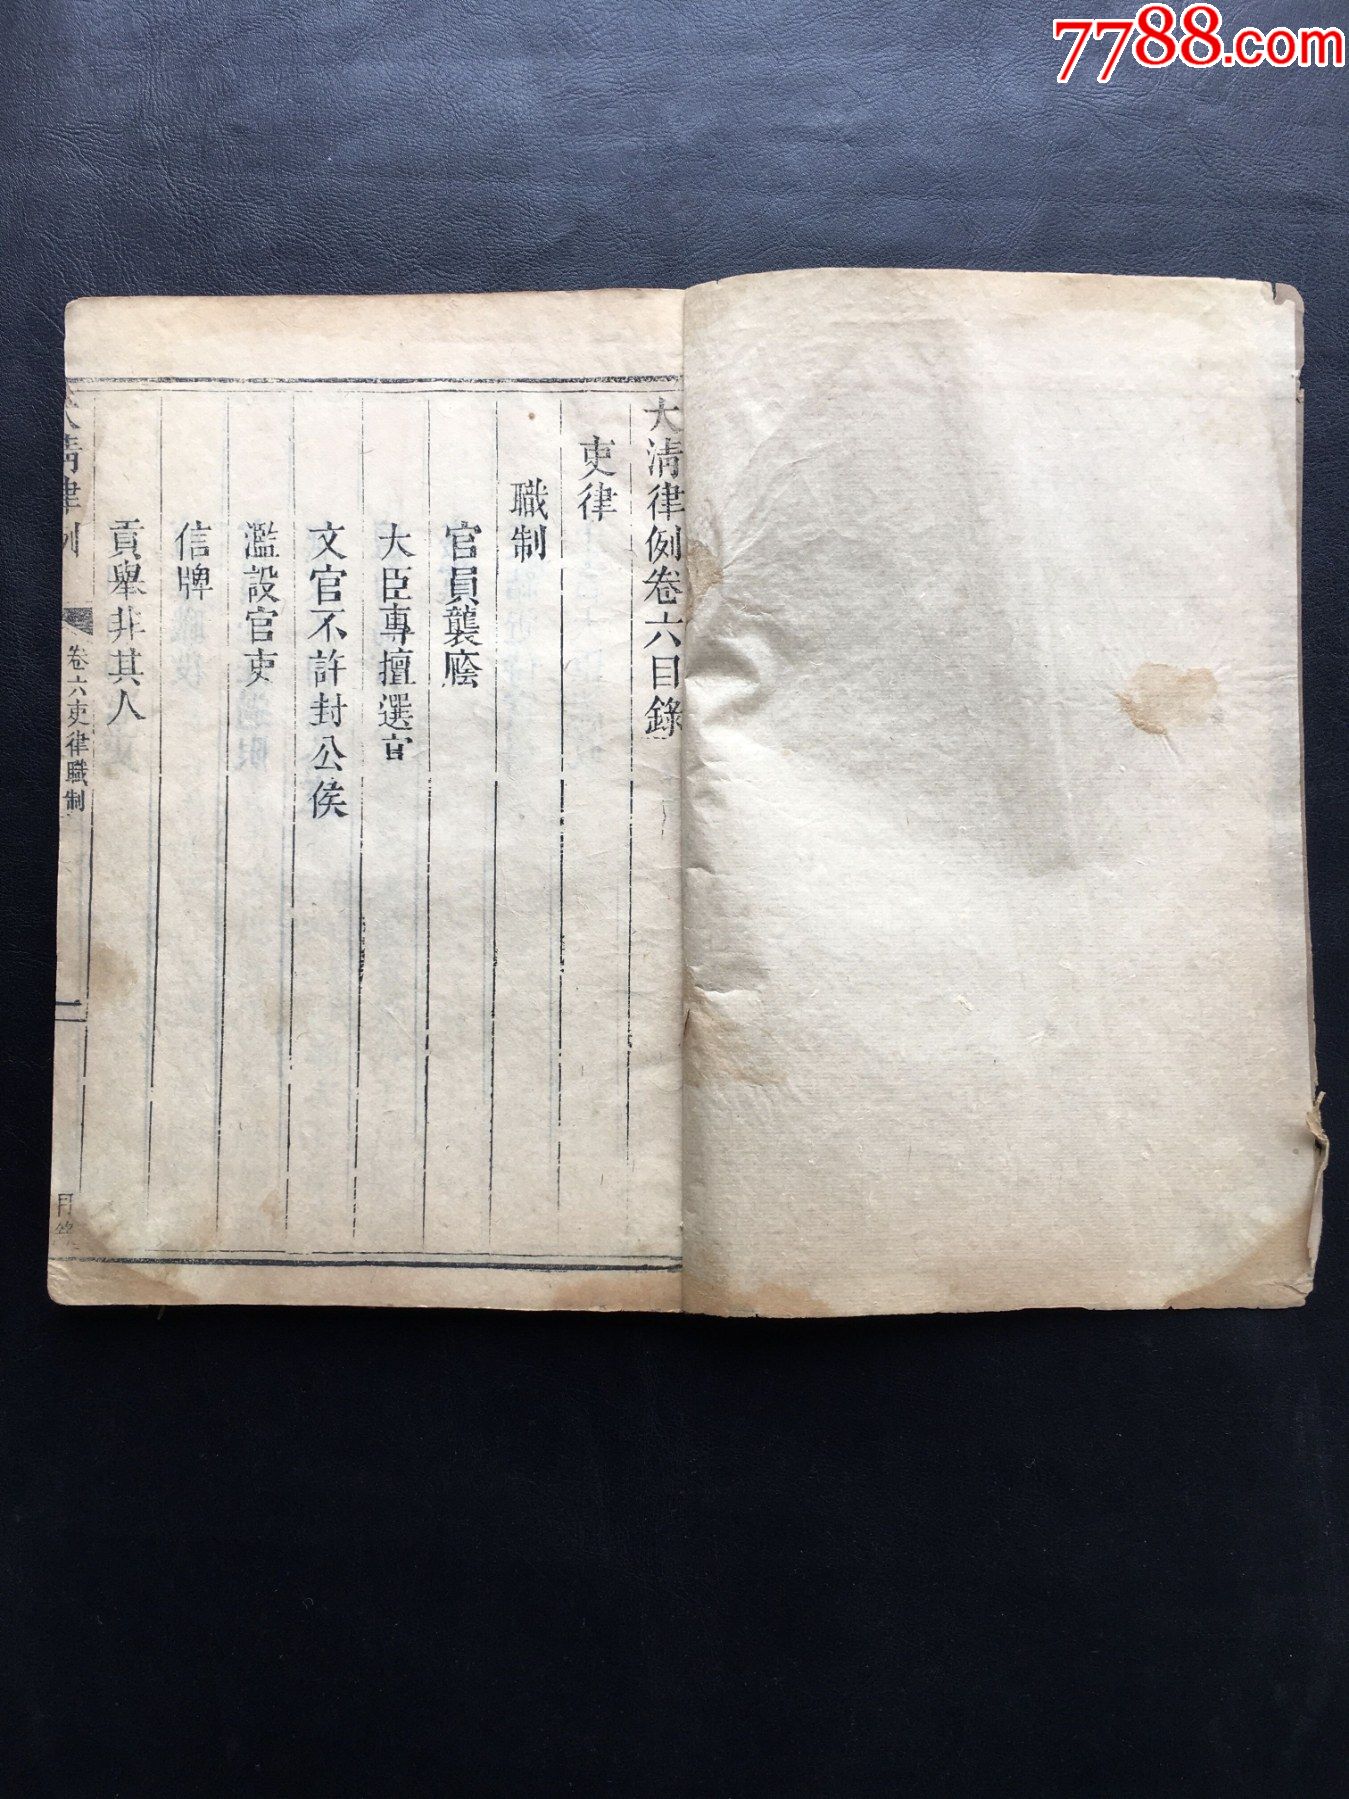 7788.com
大清律例卷六目錄
吏律
職制
官員襲廕
大臣專擅選官
文官不許封公侯
濫設官吏
信牌
貢舉非其人
大清律例
卷六吏律職制
一